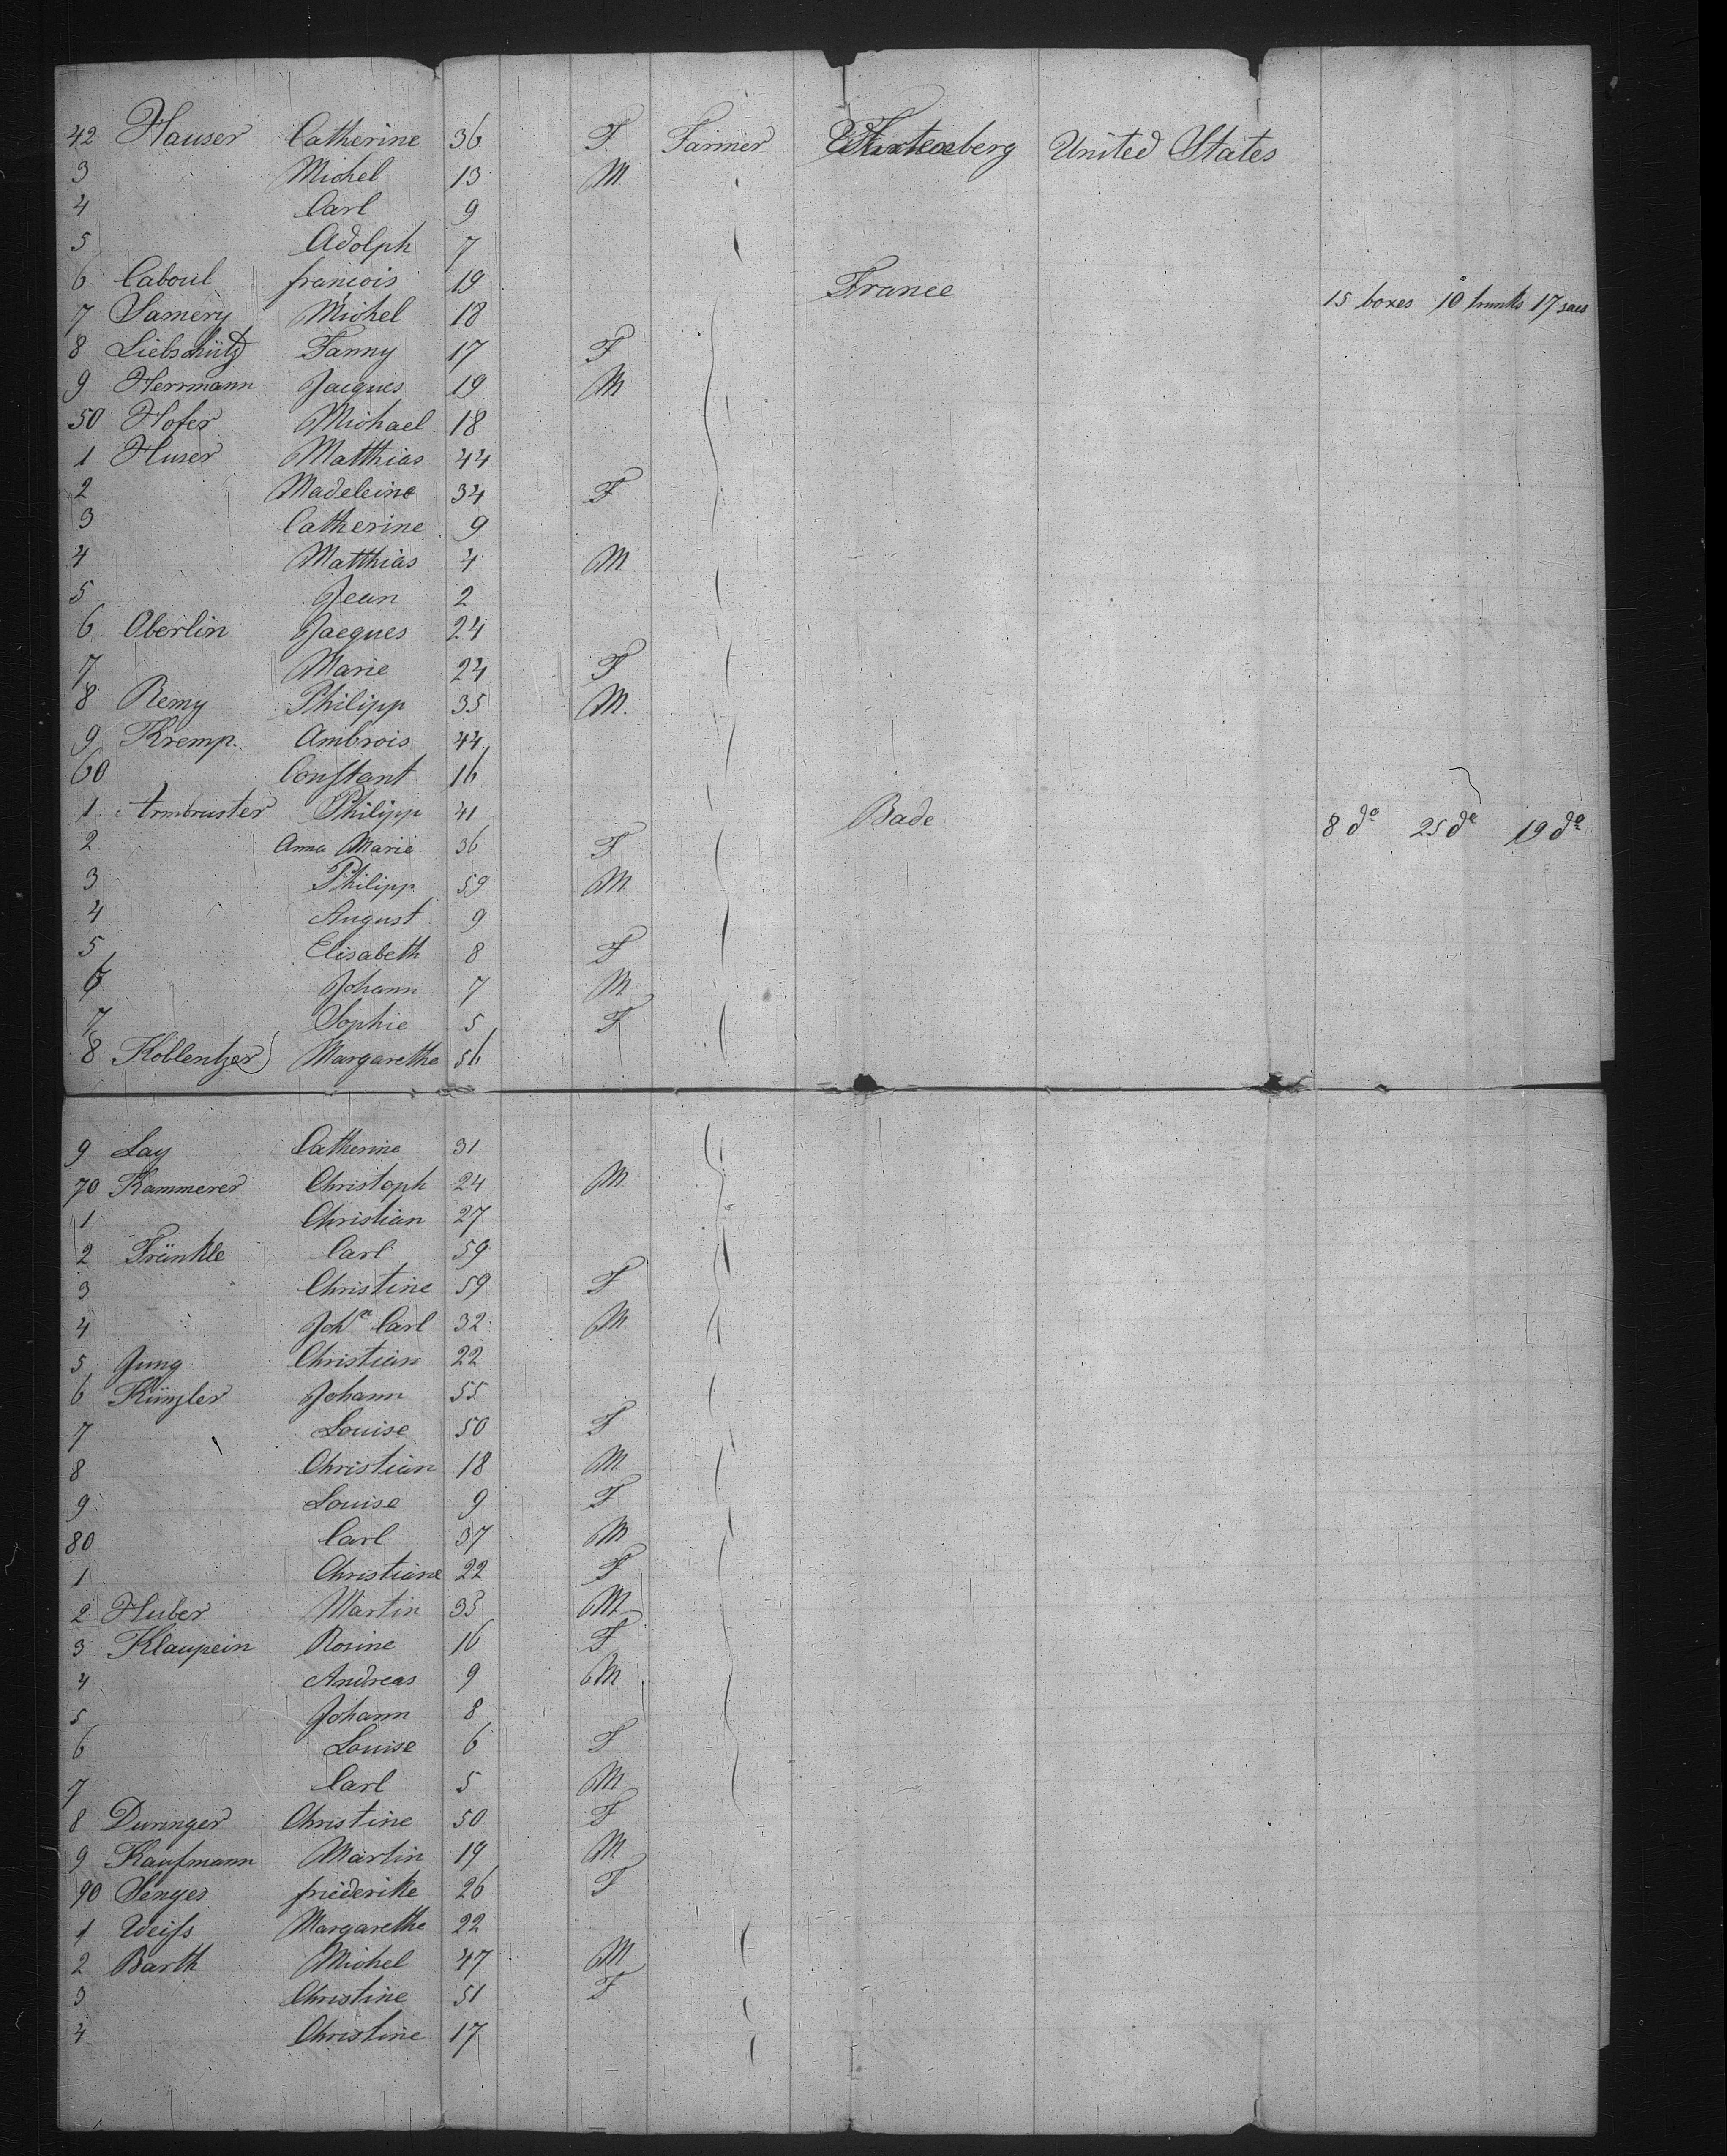 42 Hauser Catherine 36 F. Farmer Würtemberg United States
3 Michel 13 M
4 Carl 9
5 Adolph 7
6 Caboul françois 19 France 15 boxes 10 trunks 17 sacs
7 Samery Michel 18
8 Liebschütz Fanny 17 F
9 Herrmann Jacques 19 M
50 Hofer Michael 18
1 Huser Matthias 44
2 Madeleine 34 F
3 Catherine 9
4 Matthias 4 M
5 Jean 2
6 Oberlin Jacques 24
7 Marie 24 F
8 Remy Philipp 35 M.
9 Kremp. Ambrois 44
60 Constant 16
1 Armbruster Philipp 41 Bade 8 do 25 do 19 do
2 Anna Marie 36 F
3 Philipp 59 M
4 August 9
5 Elisabeth 8 F
6 Johann 7 M
7 Sophie 5 F
8 Koblentzer Margarethe 56
9 Lay Catherine 31
70 Kammerer Christoph 24 M
1 Christian 27
2 Fränkle Carl 59
3 Christine 59 F
4 Joh.n Carl 32 M
5 Jung Christian 22
6 Künzler Johann 55
7 Louise 50 F
8 Christian 18 M
9 Louise 9 F
80 Carl 37 M
1 Christiane 22 F
2 Huber Martin 33 M
3 Klaupein Rosine 16 F
4 Andreas 9 M
5 Johann 8
6 Louise 6 F
7 Carl 5 M
8 Duringer Christine 50 F
9 Kaufmann Martin 19 M
90 Senges friederike 26 F
1 Weiss Margarethe 22
2 Barth Michel 47 M
3 Christine 51 F
4 Christine 17